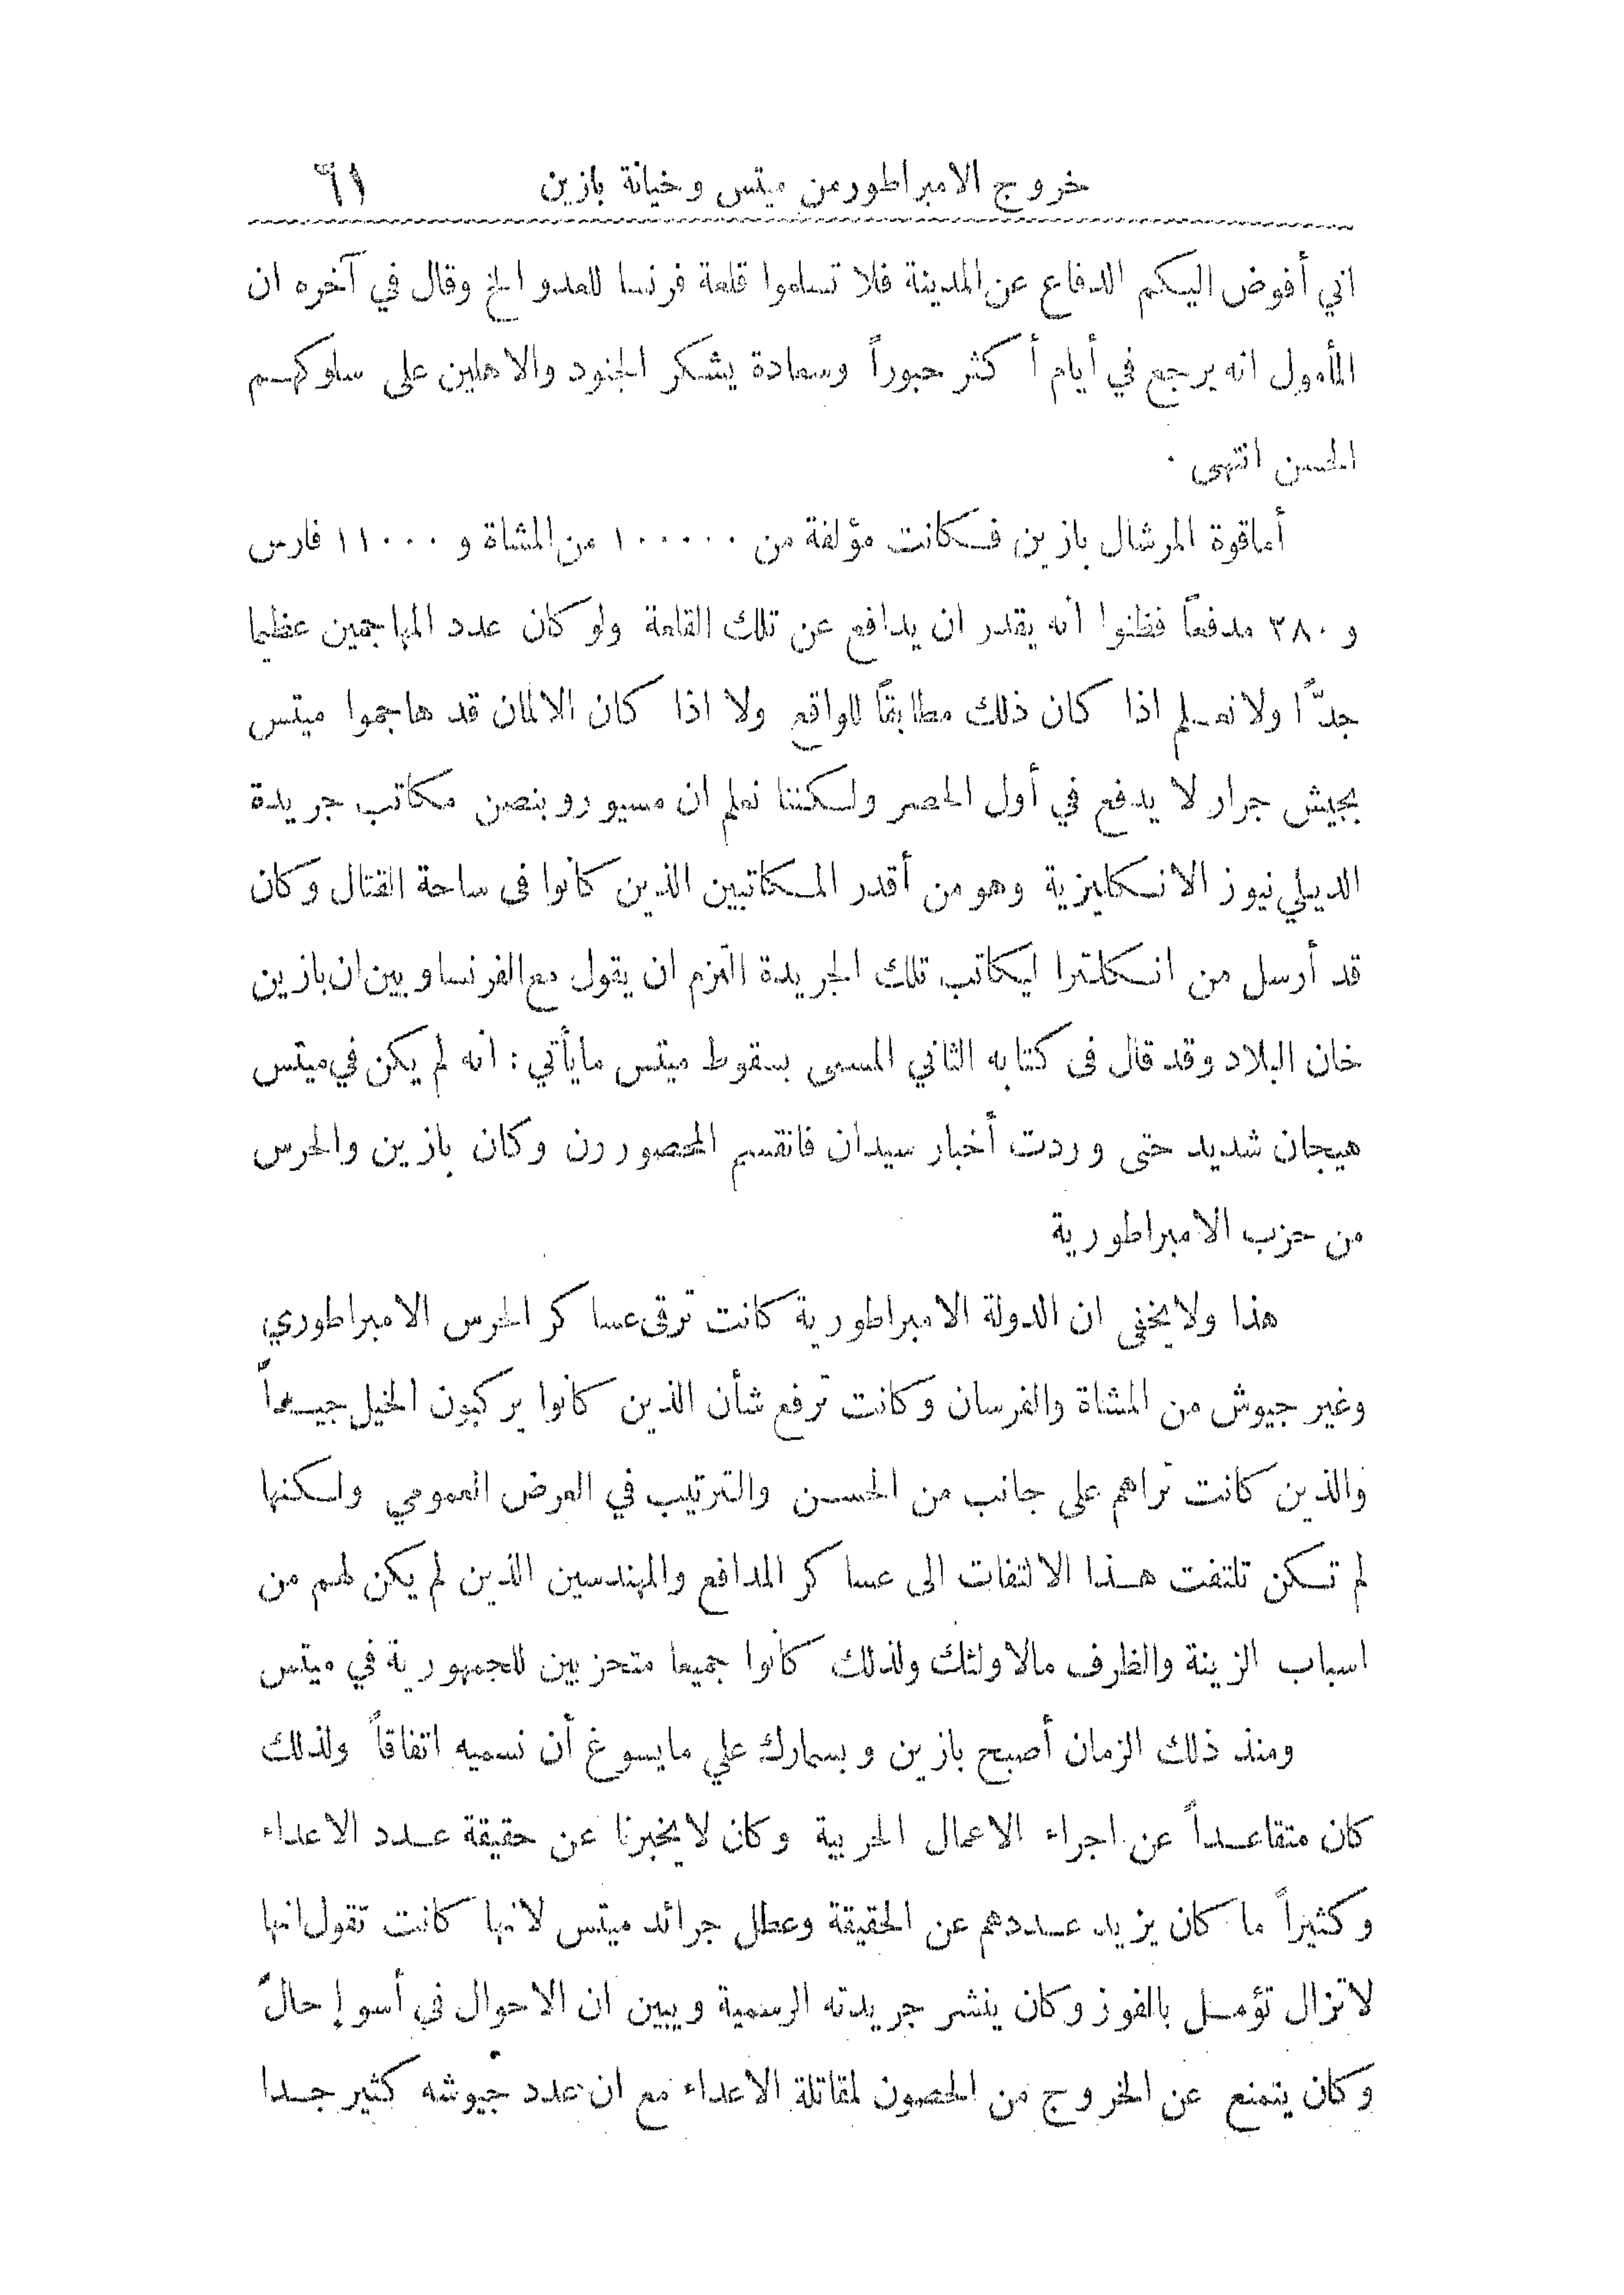 خروج الامبراطور من ميتس وخيانة بازين ٦١
اني أفوض اليكم الدفاع عن المدينة فلا تسلموا قلعة فرنسا للعدو الخ وقال في آخره ان
المأمول انه يرجع في أيام أكثر حبوراً وسعادة يشكر الجنود والاهلين على سلوكهم
الحسن انتهى ٠
أما قوة المرشال بازين فكانت مؤلفة من ١٠٠٠٠٠ من المشاة و ١١٠٠٠ فارس
و ٣٨٠ مدفعاً فظنوا انه يقدر ان يدافع عن تلك القلعة ولو كان عدد المهاجمين عظيما
جدّاً ولا نعلم اذا كان ذلك مطابقاً للواقع ولا اذا كان الالمان قد هاجموا ميتس
بجيش جرار لا يدفع في أول الحصر ولكننا نعلم ان مسيو روبنصن مكاتب جريدة
الديلي نيوز الانكليزية وهو من أقدر المكاتبين الذين كانوا فى ساحة القتال وكان
قد أرسل من انكلترا ليكاتب تلك الجريدة التزم ان يقول مع الفرنساويين ان بازين
خان البلاد وقد قال فى كتابه الثاني المسمى بسقوط ميتس ما يأتي : انه لم يكن في ميتس
هيجان شديد حتى وردت أخبار سيدان فانقسم المحصورون وكان بازين والحرس
من حزب الامبراطورية
هذا ولا يخفى ان الدولة الامبراطورية كانت ترقى عساكر الحرس الامبراطوري
وغير جيوش من المشاة والفرسان وكانت ترفع شأن الذين كانوا يركبون الخيل جيداً
والذين كانت تراهم على جانب من الحسن والترتيب في العرض العمومي ولكنها
لم تكن تلتفت هذا الالتفات الى عساكر المدافع والمهندسين الذين لم يكن لهم من
اسباب الزينة والظرف ما لاولئك ولذلك كانوا جميعا متحزبين للجمهورية في ميتس
ومنذ ذلك الزمان أصبح بازين وبسمارك علي ما يسوغ أن نسميه اتفاقاً ولذلك
كان متقاعداً عن اجراء الاعمال الحربية وكان لا يخبرنا عن حقيقة عدد الاعداء
وكثيراً ما كان يزيد عددهم عن الحقيقة وعطل جرائد ميتس لانها كانت تقول انها
لا تزال تؤمل بالفوز وكان ينشر جريدته الرسمية ويبين ان الاحوال في أسوإ حال
وكان يتمنع عن الخروج من الحصون لمقاتلة الاعداء مع ان عدد جيوشه كثير جدا